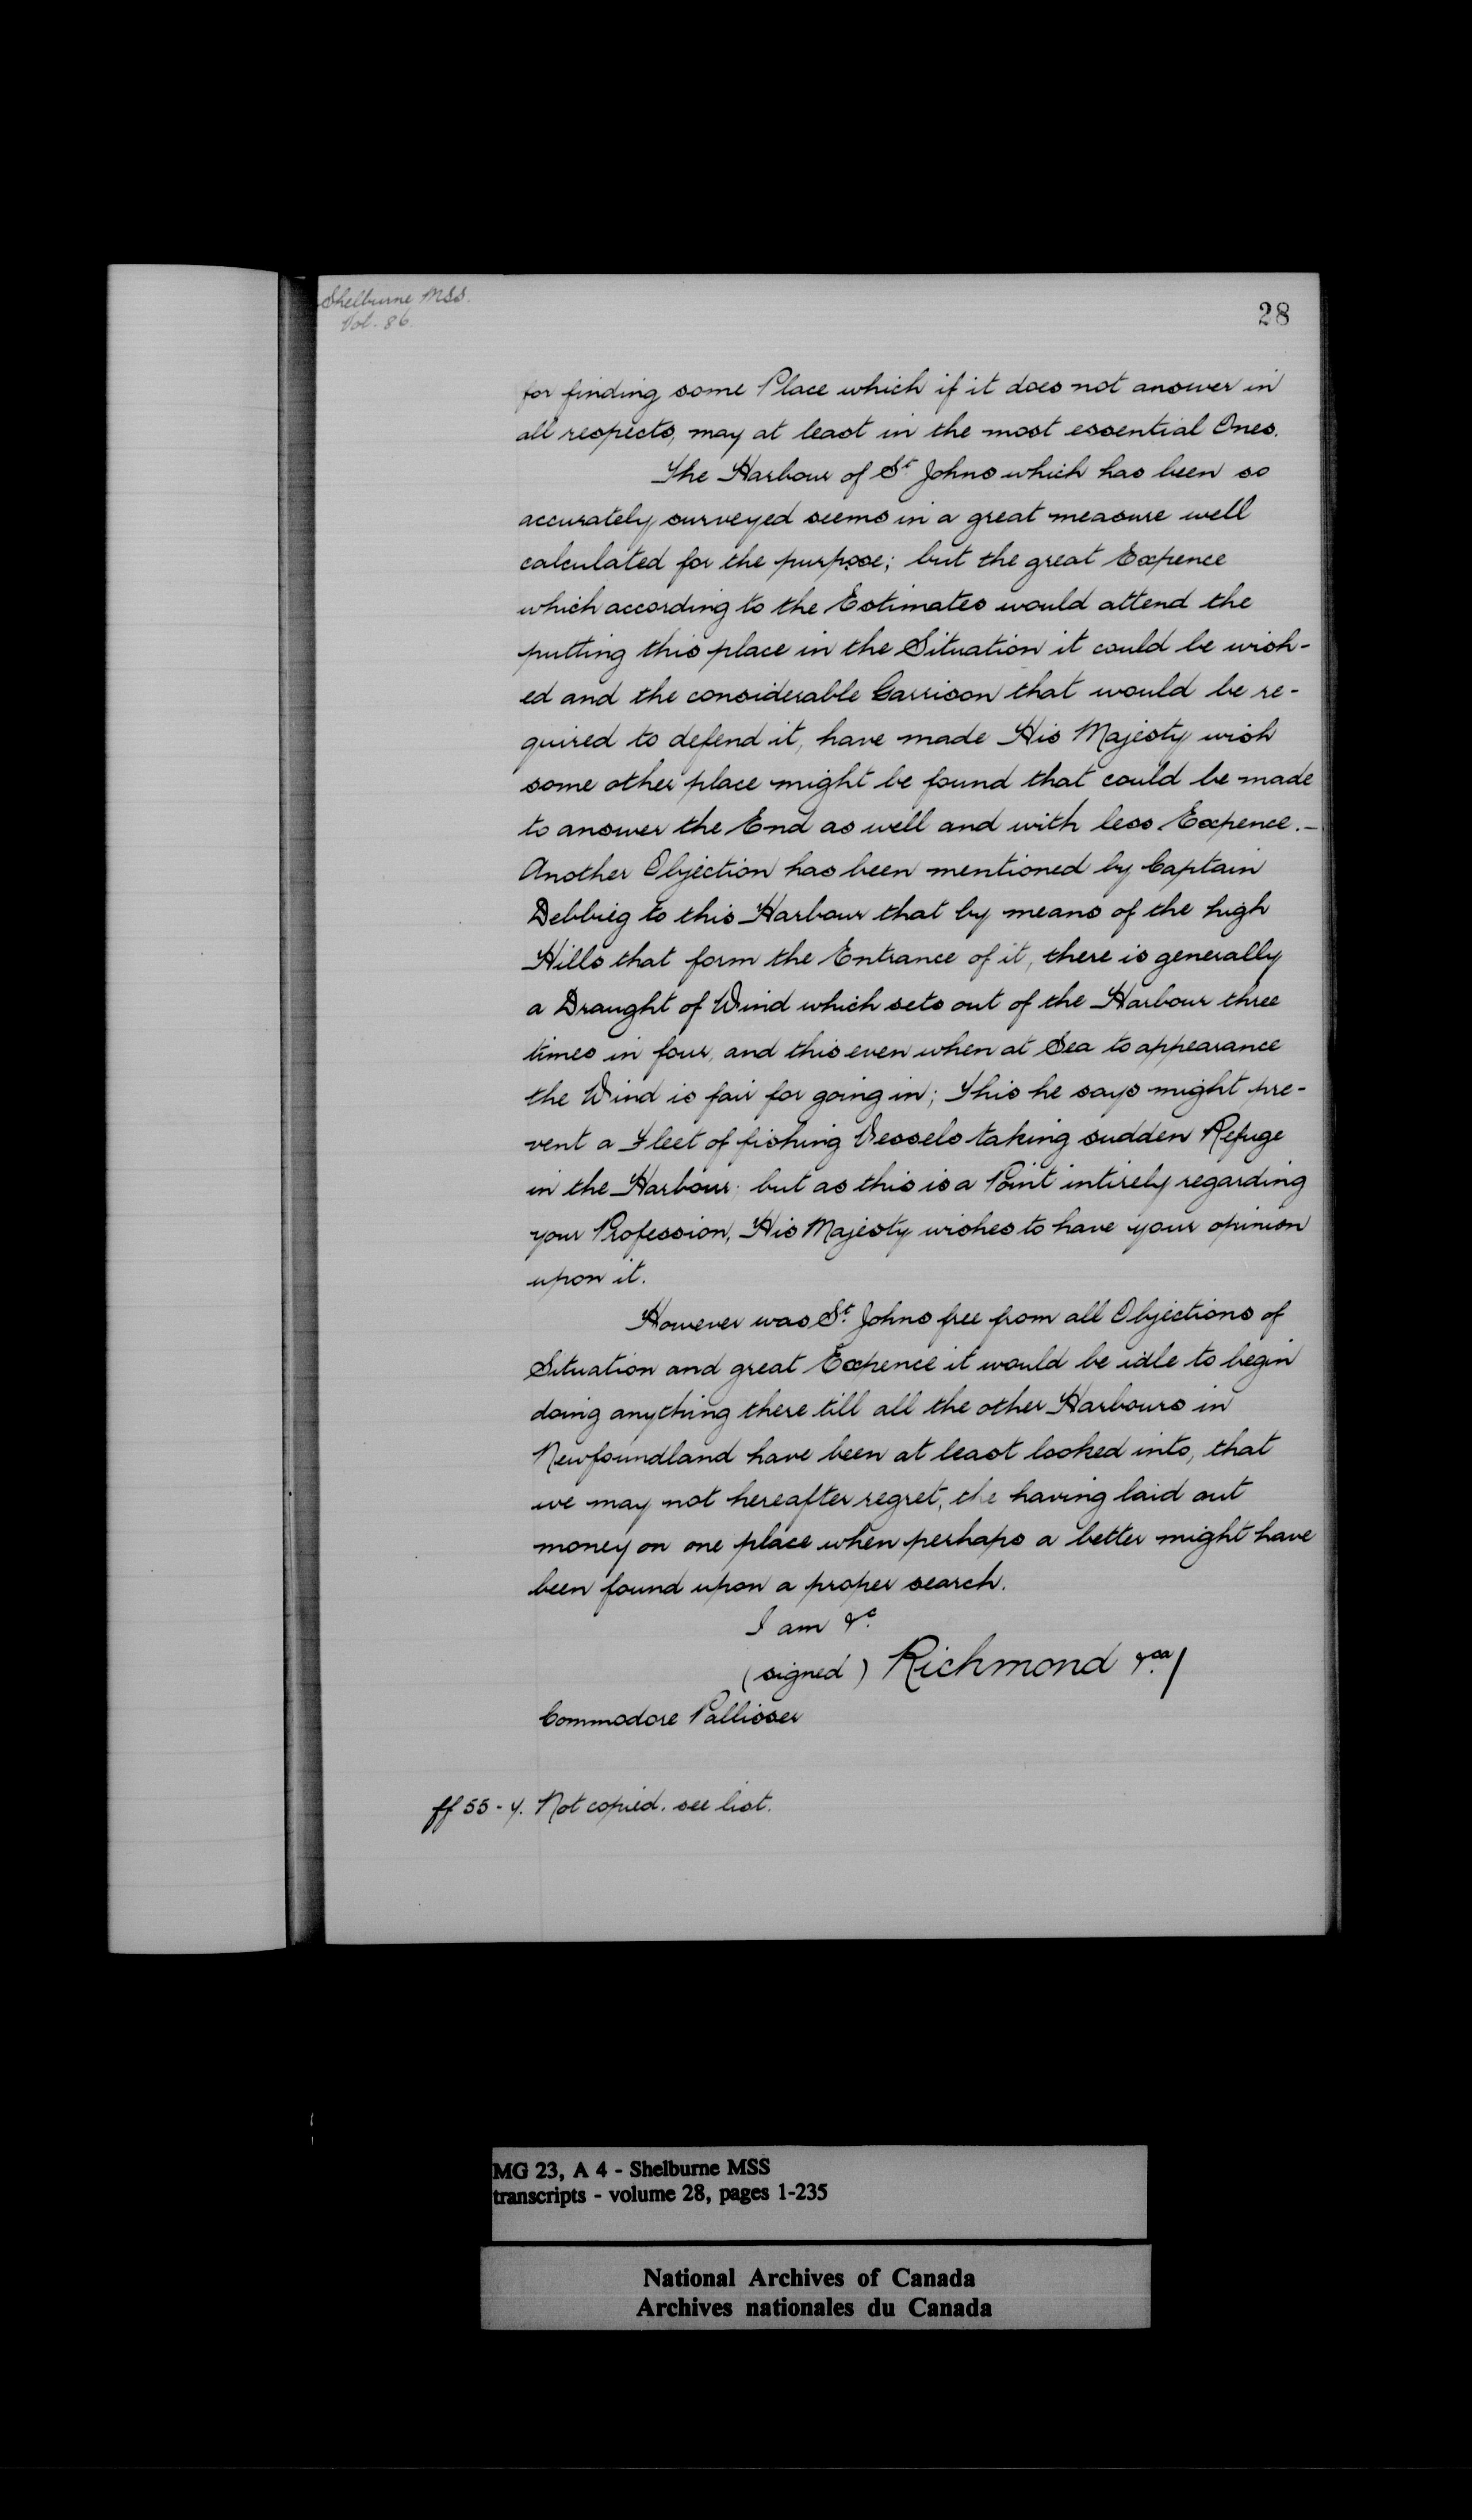 Shelburne MSS.
Vol. 86.
28
for finding some Place which if it does not answer in
all respects, may at least in the most essential Ones.
The Harbour of St. Johns which has been so
accurately surveyed seems in a great measure well
calculated for the purpose; but the great Expence
which according to the Estimates would attend the
putting this place in the Situation it could be wish-
ed and the considerable Garrison that would be re-
quired to defend it, have made His Majesty wish
some other place might be found that could be made
to answer the End as well and with less Expence.—
Another Objection has been mentioned by Captain
Debbieg to this Harbour that by means of the high
Hills that form the Entrance of it, there is generally
a Draught of Wind which sets out of the Harbour three
times in four, and this even when at Sea to appearance
the Wind is fair for going in; This he says might pre-
vent a Fleet of fishing Vessels taking sudden Refuge
in the Harbour; but as this is a Point intirely regarding
your Profession, His Majesty wishes to have your opinion
upon it.
However was St. Johns free from all Objections of
Situation and great Expence it would be idle to begin
doing anything there till all the other Harbours in
Newfoundland have been at least looked into, that
we may not hereafter regret, the having laid out
money on one place when perhaps a better might have
been found upon a proper search.
I am &c.
(signed) Richmond &ca/
Commodore Pallisser
ff 55-7. Not copied. see list.
MG 23, A 4 - Shelburne MSS
transcripts - volume 28, pages 1-235
National Archives of Canada
Archives nationales du Canada